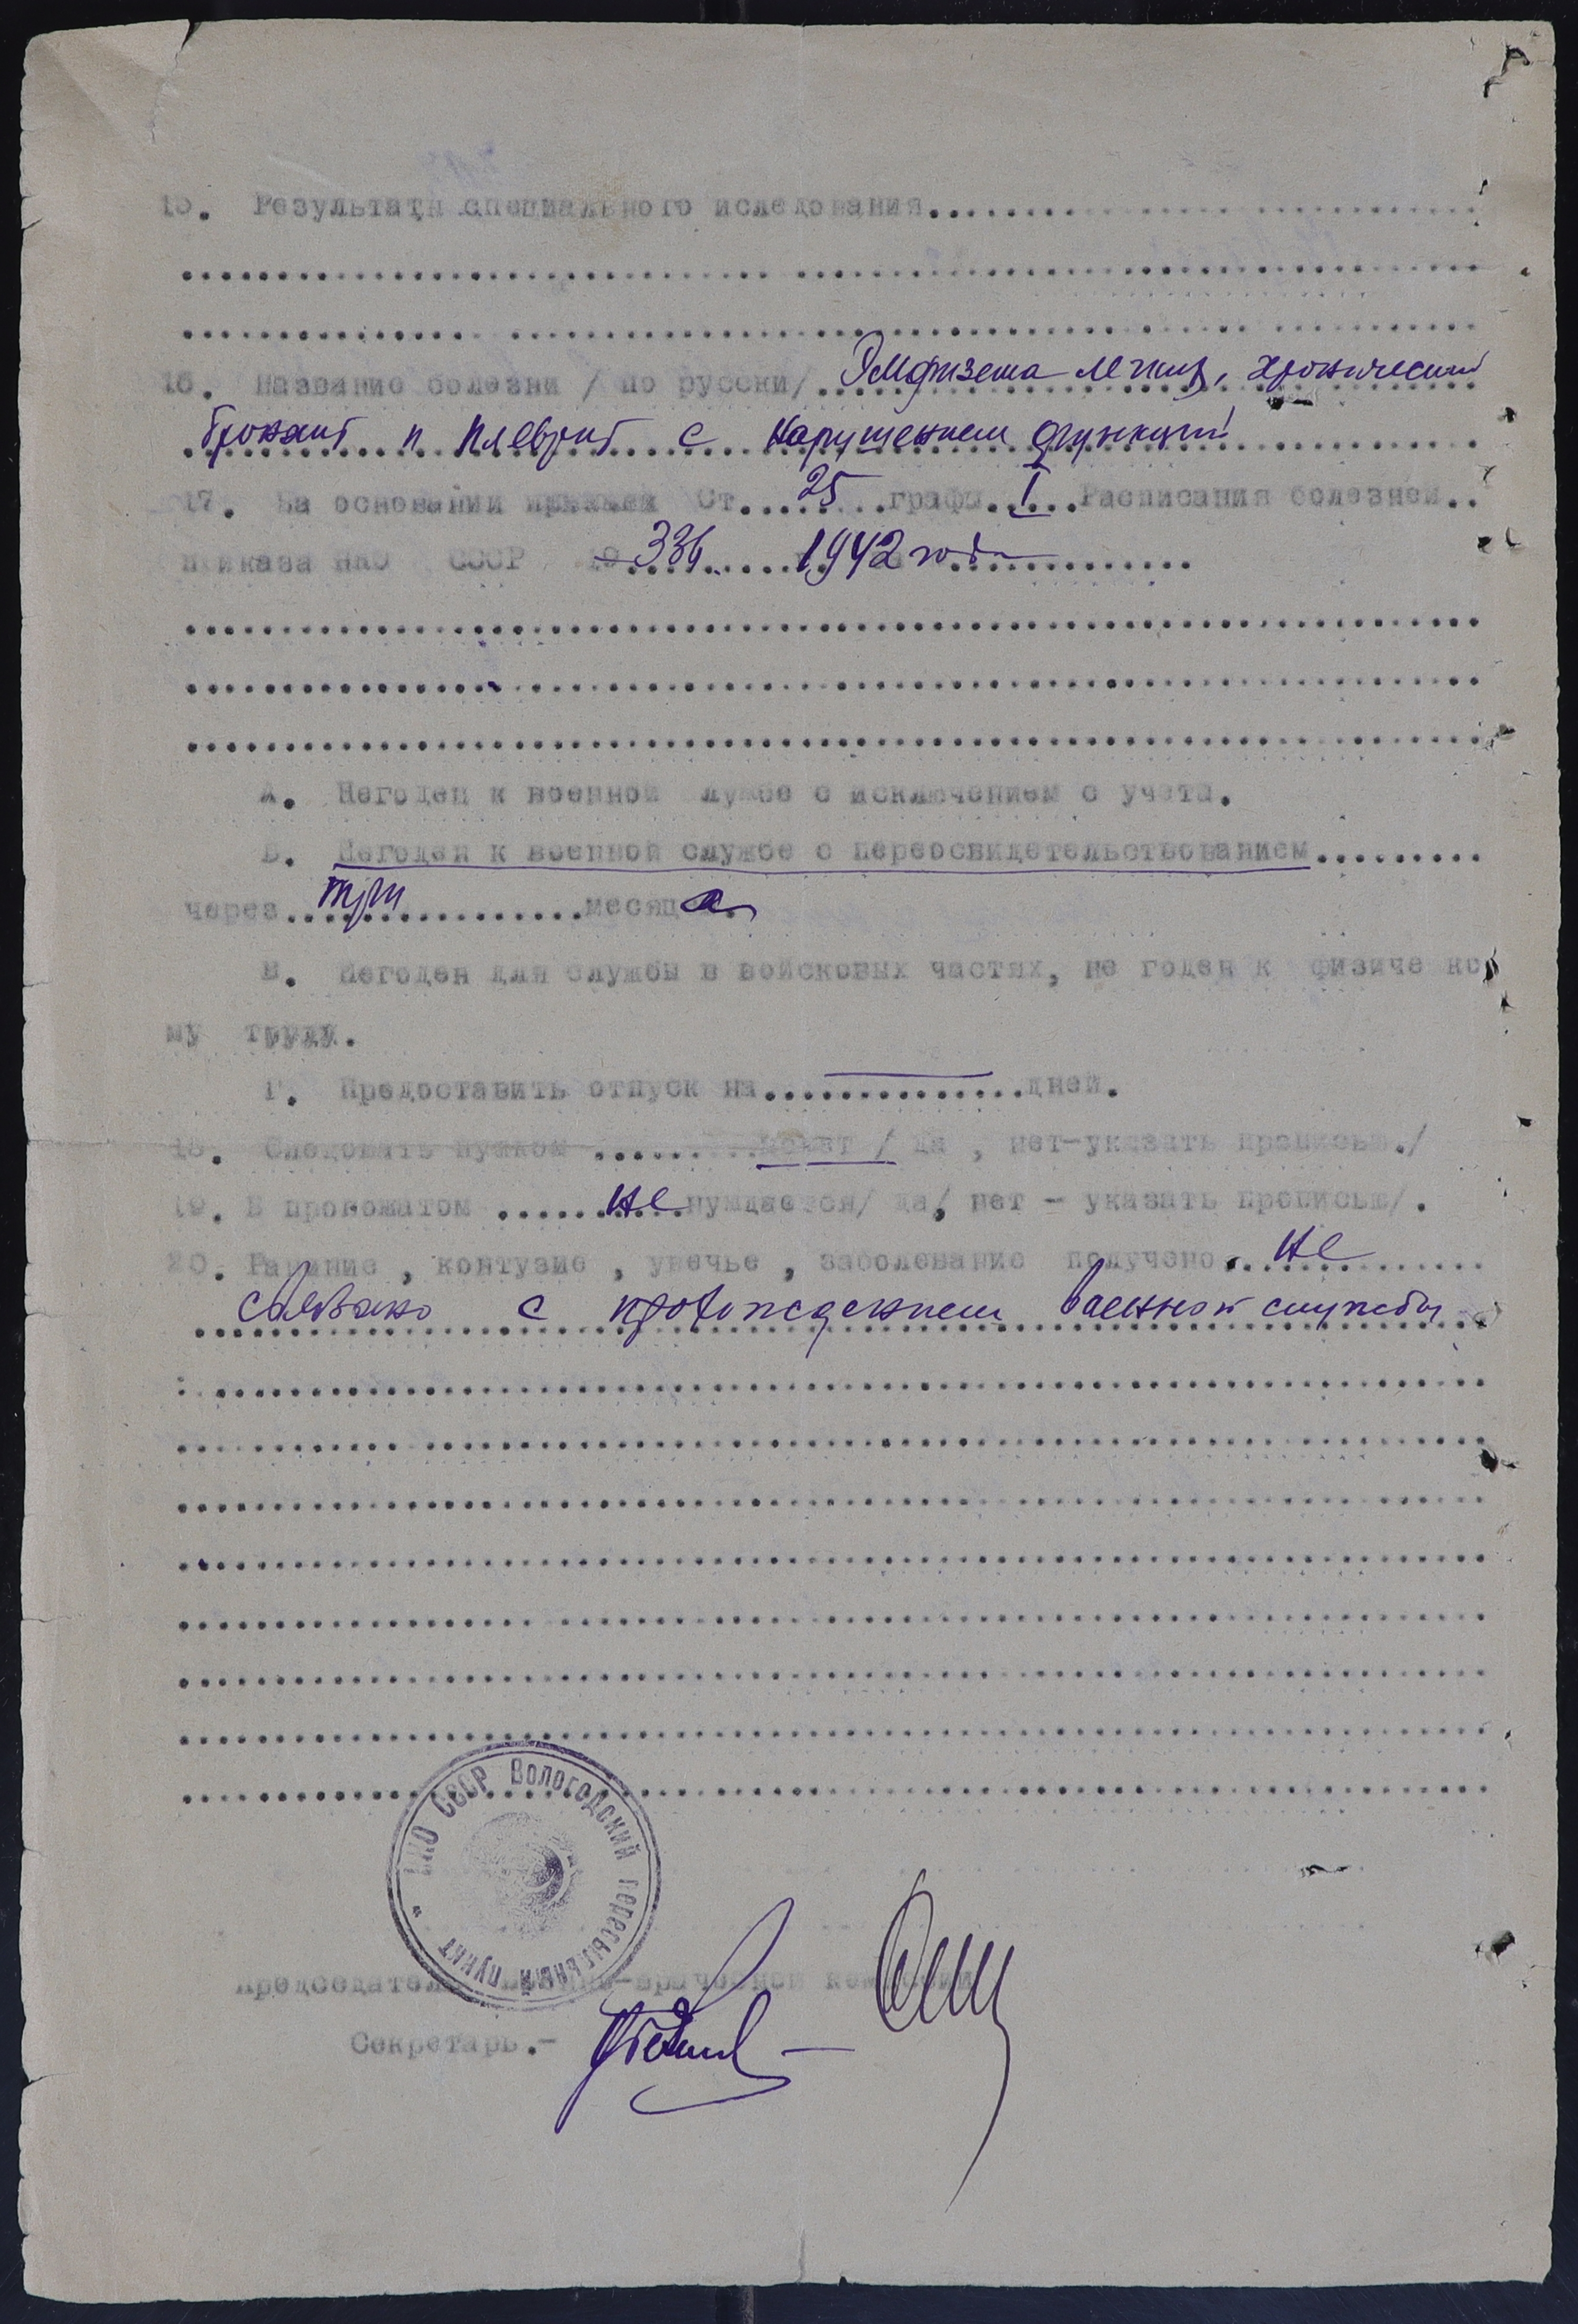 15. Результаты специального иследования..............................
16. Название болезни / по русски/ Эмфизема легких, хронический
бронхит и плеврит с нарушением функций
17. На основании приказа Ст....25...графы..I...Расписания болезней..
приказа НКО СССР 336 1942 года
А. Негоден к военной службе с исключением с учета.
Б. Негоден к военной службе с переосвидетельствованием.........
через...три...месяца.
В. Негоден для службы в войсковых частях, не годен к физическо
му труду.
Г. Предоставить отпуск на..............дней.
18. Следовать пешком .........может / да , нет-указать прописью./
19. В провожатом ........не нуждается/ да, нет - указать прописью/.
20. Ранение , контузие , увечье , заболевание получено...не
связано с прохождением военной службы
НКО СССР Вологодский пересыльный пункт
Председатель военно-врачебной комиссии
Секретарь.-